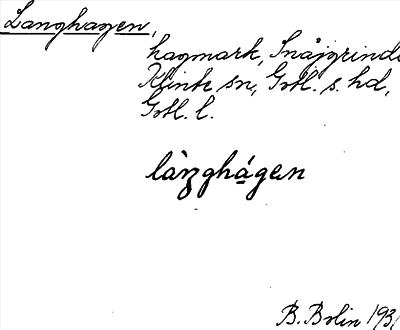 Langhagen,
hagmark, Snäjgrinde
Klinte sn, Gotl. s. hd,
Gotl. l.
làŋghágen
B. Bolin 193